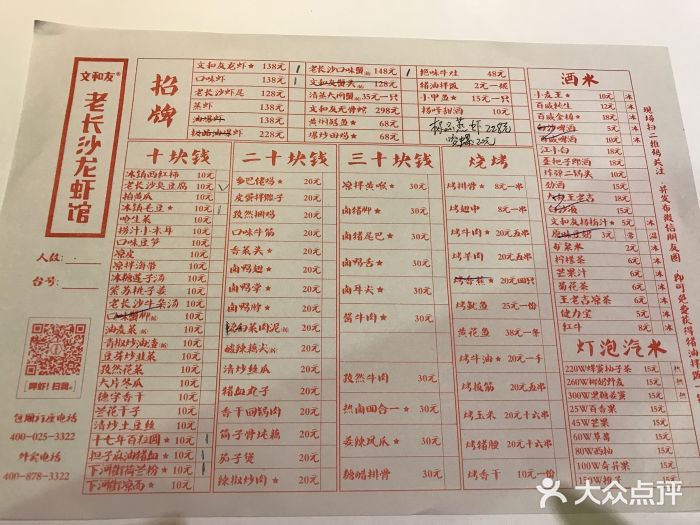 文和友®
老长沙龙虾馆
人数:
台号:
嘿虾!扫我。
包厢订座电话
400-025-3322
外卖电话
400-878-3322
招牌
文和友龙虾★ 138元
口味虾 138元
老长沙虾尾 128元
蒸虾 138元
油爆虾 138元
极品油爆虾 228元
老长沙口味蟹 148元
文和友蟹夹 128元
清蒸大闸蟹 35元一只
文和友无骨蛇 298元
黄州冠鱼★ 68元
爆炒田鸡★ 68元
绝味牛灶 48元
猪油拌饭 2元一碗
小甲鱼★ 15元一只
杨哥甜酒 10元
极品蒸虾 228元
十块钱
冰镇西红柿 10元
老长沙臭豆腐 10元
拍黄瓜 10元
冰镇毛豆★ 10元
呛生菜 10元
捞汁小木耳 10元
口味豆笋 10元
凉皮 10元
凉拌海带 10元
冰糖莲子汤 10元
紫苏桃子姜 10元
老长沙牛杂汤 10元
口味蟹脚 10元
油麦菜 10元
青椒炒油渣 10元
豆芽炒韭菜 10元
孜然花菜 10元
大片冬瓜 10元
德字香干 10元
兰花干子 10元
清炒土豆丝 10元
十七年百粒圆★ 10元
担子麻油猪血 10元
下河街荷兰粉★ 10元
下河街凉面★ 10元
二十块钱
乡巴佬鸡 20元
皮蛋拌辣子 20元
孜然捆鸡 20元
口味牛筋 20元
香菜头 20元
卤鸭翅★ 20元
卤鸭掌★ 20元
卤鸭脖★ 20元
菜肉泥 20元
酸辣藕尖 20元
清炒丝瓜 20元
猪血丸子 20元
香干回锅肉 20元
筒子骨炖藕 20元
茄子煲 20元
辣椒炒肉★ 20元
三十块钱
凉拌黄喉★ 30元
卤猪脚★ 30元
卤猪尾巴★ 30元
卤鸭舌★ 30元
卤耳尖★ 30元
酱牛肉★ 30元
孜然牛肉 30元
热卤四合一★ 30元
姜辣凤爪★ 30元
糖醋排骨 30元
烧烤
烤排骨★ 8元一串
烤翅中 8元一串
烤牛肉★ 20元五串
烤羊肉 20元五串
烤香蕉★ 20元四只
烤鱿鱼 25元一份
黄花鱼 38元一条
烤牛油★ 20元一手
烤板筋 20元五串
烤玉米 20元十六串
烤猪腰 20元十六串
烤香干 10元一份
酒水
小麦王★ 10元 冰
百威纯生 12元 冰
百威金樽★ 18元 冰
啤酒 5元 冰
百威啤酒 10元 冰
江小白 18元
歪把子郎酒 18元
炸弹二锅头 15元
劲酒 15元
王老吉 15元
15元
文和友杨梅汁★ 5元 冰
原味豆奶 3元 常 温 冰
矿泉水 2元
柠檬茶 6元
芒果汁 6元
菊花茶 6元
王老吉凉茶 6元
健力宝 6元
红牛 8元
灯泡汽水
220W蜂蜜柚子茶 15元 热
260W椰奶野麦 15元 热
300W黑糖姜蜜 15元 热
25W百香果 15元
45W芒果 15元
60W草莓 15元
80W西柚 15元
100W奇异果 15元
150W柚子 15元
现场扫二维码关注,并发布微信朋友圈,即可免费获得猪油拌饭
大众点评